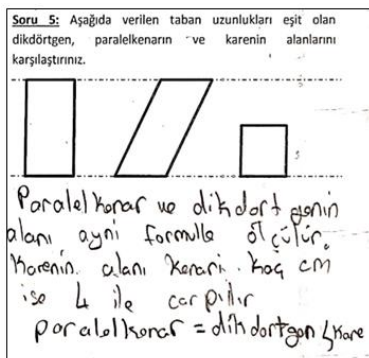 Soru 5: Aşağıda verilen taban uzunlukları eşit olan
dikdörtgen, paralelkenarın ve karenin alanlarını
karşılaştırınız.
Paralel kenar ve dikdortgenin
alanı ayni formulle ölçülür.
Karenin alanı kenari kaç cm
ise 4 ile carpılır
paralelkenar = dikdortgen
Kare